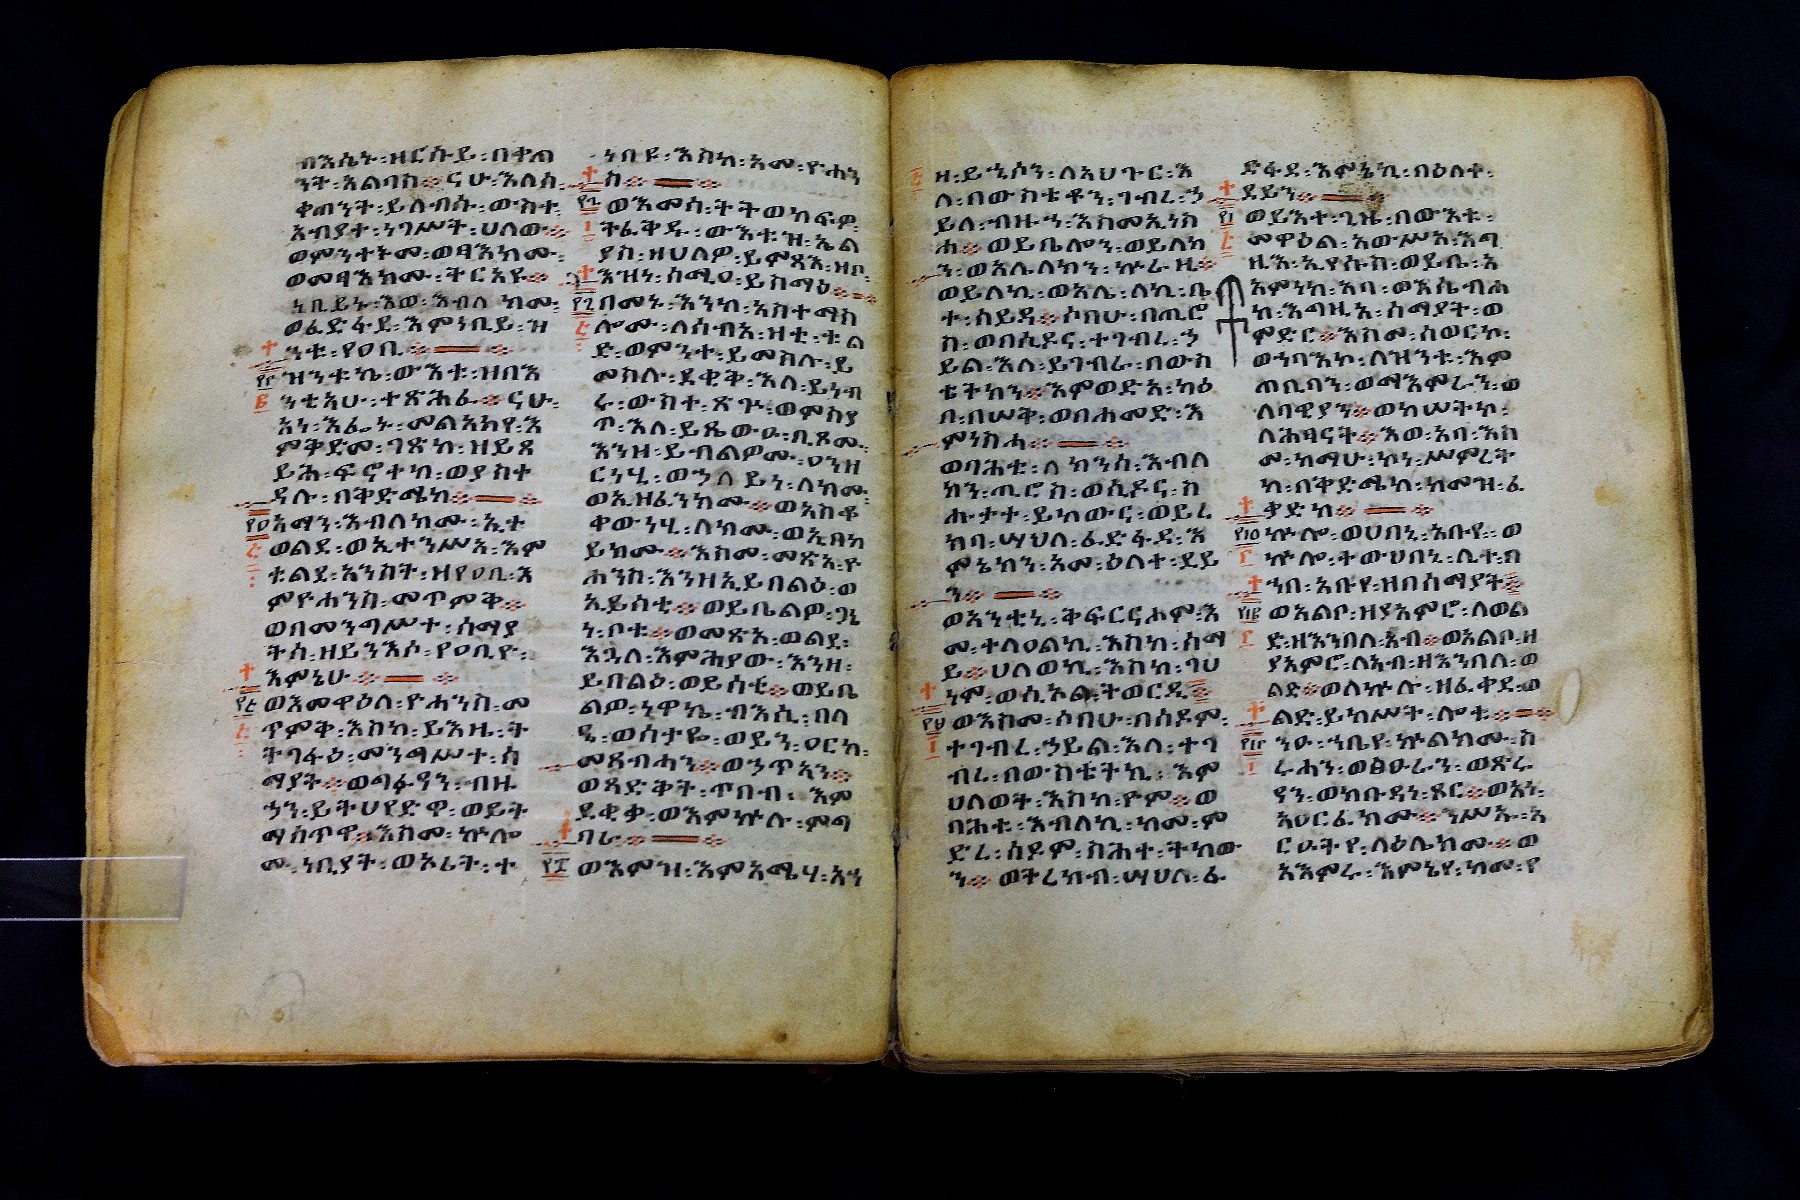 ብእሴኑ፡ዘርኁይ፡በቀጠ
ንት፡አልባስ፨ናሁ፡እለ፡ሰ
ቀጠንት፡ይለብሱ፡ውስተ፡
አብያተ፡ነገሥት፡ሀለው፨
ወምንተትመ፡ወፃእክሙ፡
ወመፃእክሙ፡ትርአዩ፨
ነቢይኑ፡እወ፡እብለ፡ክሙ፡
ወፈድፋደ፡እምነቢይ፡ዝ
ንቱ፡የዐቢ፨
ዝንቱኬ፡ውእቱ፡ዘበእ
ንቲአሁ፡ተጽሕፈ፨ናሁ፡
አነ፡እፌኑ፡መልአክየ፡እ
ምቅድመ፡ገጽከ፡ዘይጸ
ይሕ፡ፍኖተከ፡ወያስተ
ዳሉ፡በቅድሜከ፨
አማን፡እብለክሙ፡ኢተ
ወልደ፡ወኢተንሥአ፡እም
ቱልደ፡አንስት፡ዘየዐቢ፡እ
ምዮሐንስ፡መጥምቅ፨
ወበመንግሥተ፡ሰማያ
ትሰ፡ዘይንእሶ፡የዐቢዮ፡
እምኔሁ፨
ወእመዋዕለ፡ዮሐንስ፡መ
ጥምቅ፡እስከ፡ይእዜ፡ት
ትገፋዕ፡መንግሥተ፡ሰ
ማያት፨ወግፉዓን፡ብዙ
ኃን፡ይትሀየድዋ፡ወይት
ማሰጥዋ፨እስመ፡ኵሎ
ሙ፡ነቢያት፡ወኦሪት፡ተ
ነበዩ፡እስከ፡አመ፡ዮሐን
ስ፨
ወእመሰ፡ትትወከፍዎ፡
ትፈቅዱ፡ውእቱ፡ዝ፡ኤል
ያስ፡ዘሀለዎ፡ይምጻእ፡ዘቦ፡
እዝነ፡ሰሚዐ፡ይስማዕ፨
በመኑ፡እንከ፡አስተማስ
ሎሙ፡ለሰብአ፡ዛቲ፡ቱል
ድ፡ወምንተ፡ይመስሉ፡ይ
መስሉ፡ደቂቅ፡እለ፡ይነብ
ሩ፡ውስተ፡ጽጕ፡ወምስያ
ጥ፡እለ፡ይጼውዑ፡ቢጾሙ፡
እንዘ፡ይብልዎሙ፡ዐንዘ
ርነሂ፡ወኃለይነ፡ለክሙ፡
ወኢዘፈንክሙ፨ወአስቆ
ቀውነሂ፡ለክሙ፡ወኢበከ
ይክሙ፨እስመ፡መጽአ፡ዮ
ሐንስ፡እንዘ፡ኢይበልዕ፡ወ
ኢይሰቲ፨ወይቤልዎ፡ጋኔ
ነ፡ቦቱ፨ወመጽአ፡ወልደ፡
እጓለ፡እምሕያው፡እንዘ፡
ይበልዕ፡ወይሰቲ፨ወይቤ
ልዎ፡ነዋኬ፡ብእሲ፡በላ
ዒ፡ወሰታዬ፡ወይን፡ዐርከ፡
መጸብሓን፨ወኃጥኣን፨
ወጸድቅት፡ጥበብ፡እም
ደቂቃ፡ወእምኵሉ፡ምግ
ባራ፨
ወእምዝ፡እምአሜሃ፡አኀ
ዘ፡ይኂሶን፡ለአህጉር፡እ
ለ፡በውስቴቶን፡ገብረ፡ኃ
ይለ፡ብዙኀ፡እስመ፡ኢነስ
ሐ፨ወይቤሎን፡ወይለከ
ን፡ወአሌ፡ለክን፡ኵራዚ፨
ወይለኪ፡ወአሌ፡ለኪ፡ቤ
ተ፡ሳይዳ፨ሶበሁ፡በጢሮ
ስ፡ወበሲዶና፡ተገብረ፡ኃ
ይል፡እለ፡ይገብራ፡በውስ
ቴትክን፨እምወድአ፡ከዕ
በ፡በሠቅ፡ወበሐመድ፡እ
ምነስሓ፨
ወባሕቱ፡ለክንሰ፡እብለ
ክን፡ጢሮስ፡ወሲዶና፡ስ
ሑታተ፡ይከውና፡ወይረ
ከባ፡ሣህለ፡ፈድፋደ፡እ
ምኔክን፡አመ፡ዕለተ፡ደይ
ን፨
ወአንቲኒ፡ቅፍርናሖም፡እ
መ፡ተለዐልኪ፡እስከ፡ሰማ
ይ፨ሀለወኪ፡እስከ፡ገሀ
ነም፡ወሲኦል፡ትወርዲ፨
ወእስመ፡ሶበሁ፡በሰዶም፡
ተገብረ፡ኃይል፡እለ፡ተገ
ብረ፡በውስቴትኪ፡እም
ሀለወት፡እስከ፡ዮም፨ወ
ባሕቱ፡እብለኪ፡ከመ፡ም
ድረ፡ሰዶም፡ስሕተ፡ትከው
ን፨ወትረክብ፡ሣህለ፡ፈ
ድፋደ፡እምኔኪ፡በዕለተ፡
ደይን፨
ወይእተ፡ጊዜ፡በውእቱ፡
መዋዕል፡አውሥአ፡እግ
ዚእ፡ኢየሱስ፡ወይቤ፡አ
አምነከ፡አባ፡ወእሴብሐ
ከ፡እግዚአ፡ሰማያት፡ወ
ምድር፨እስመ፡ሰወርከ፡
ወኀባእኮ፡ለዝንቱ፡እም
ጠቢባን፡ወማእምራን፡ወ
ለባዊያን፨ወከሠትኮ፡
ለሕፃናት፨እወ፡አባ፡እስ
መ፡ከማሁ፡ኮነ፡ሥምረት
ከ፡በቅድሜከ፡ከመዝ፡ፈ
ቃድከ፨
ኵሎ፡ወሀበኒ፡አቡየ፡ወ
ኵሎ፡ተውህበኒ፡ሊተ፡በ
ኀበ፡አቡየ፡ዘበሰማያት፨
ወአልቦ፡ዘያአምሮ፡ለወል
ድ፡ዘእንበለ፡አብ፨ወአልቦ፡ዘ
ያአምሮ፡ለአብ፡ዘእንበለ፡ወ
ልድ፨ወለኵሉ፡ዘፈቀደ፡ወ
ልድ፡ይከሥት፡ሎቱ፨
ንዑ፡ኀቤየ፡ኵልክሙ፡ስ
ሩሐን፡ወፅዑራን፡ወጽሩ
ዓን፡ወክቡዳነ፡ጾር፨ወአነ፡
አዐርፈክሙ፨ንሥኡ፡አ
ርዑትየ፡ላዕሌክሙ፨ወ
አእምሩ፡እምኔየ፡ከመ፡የ